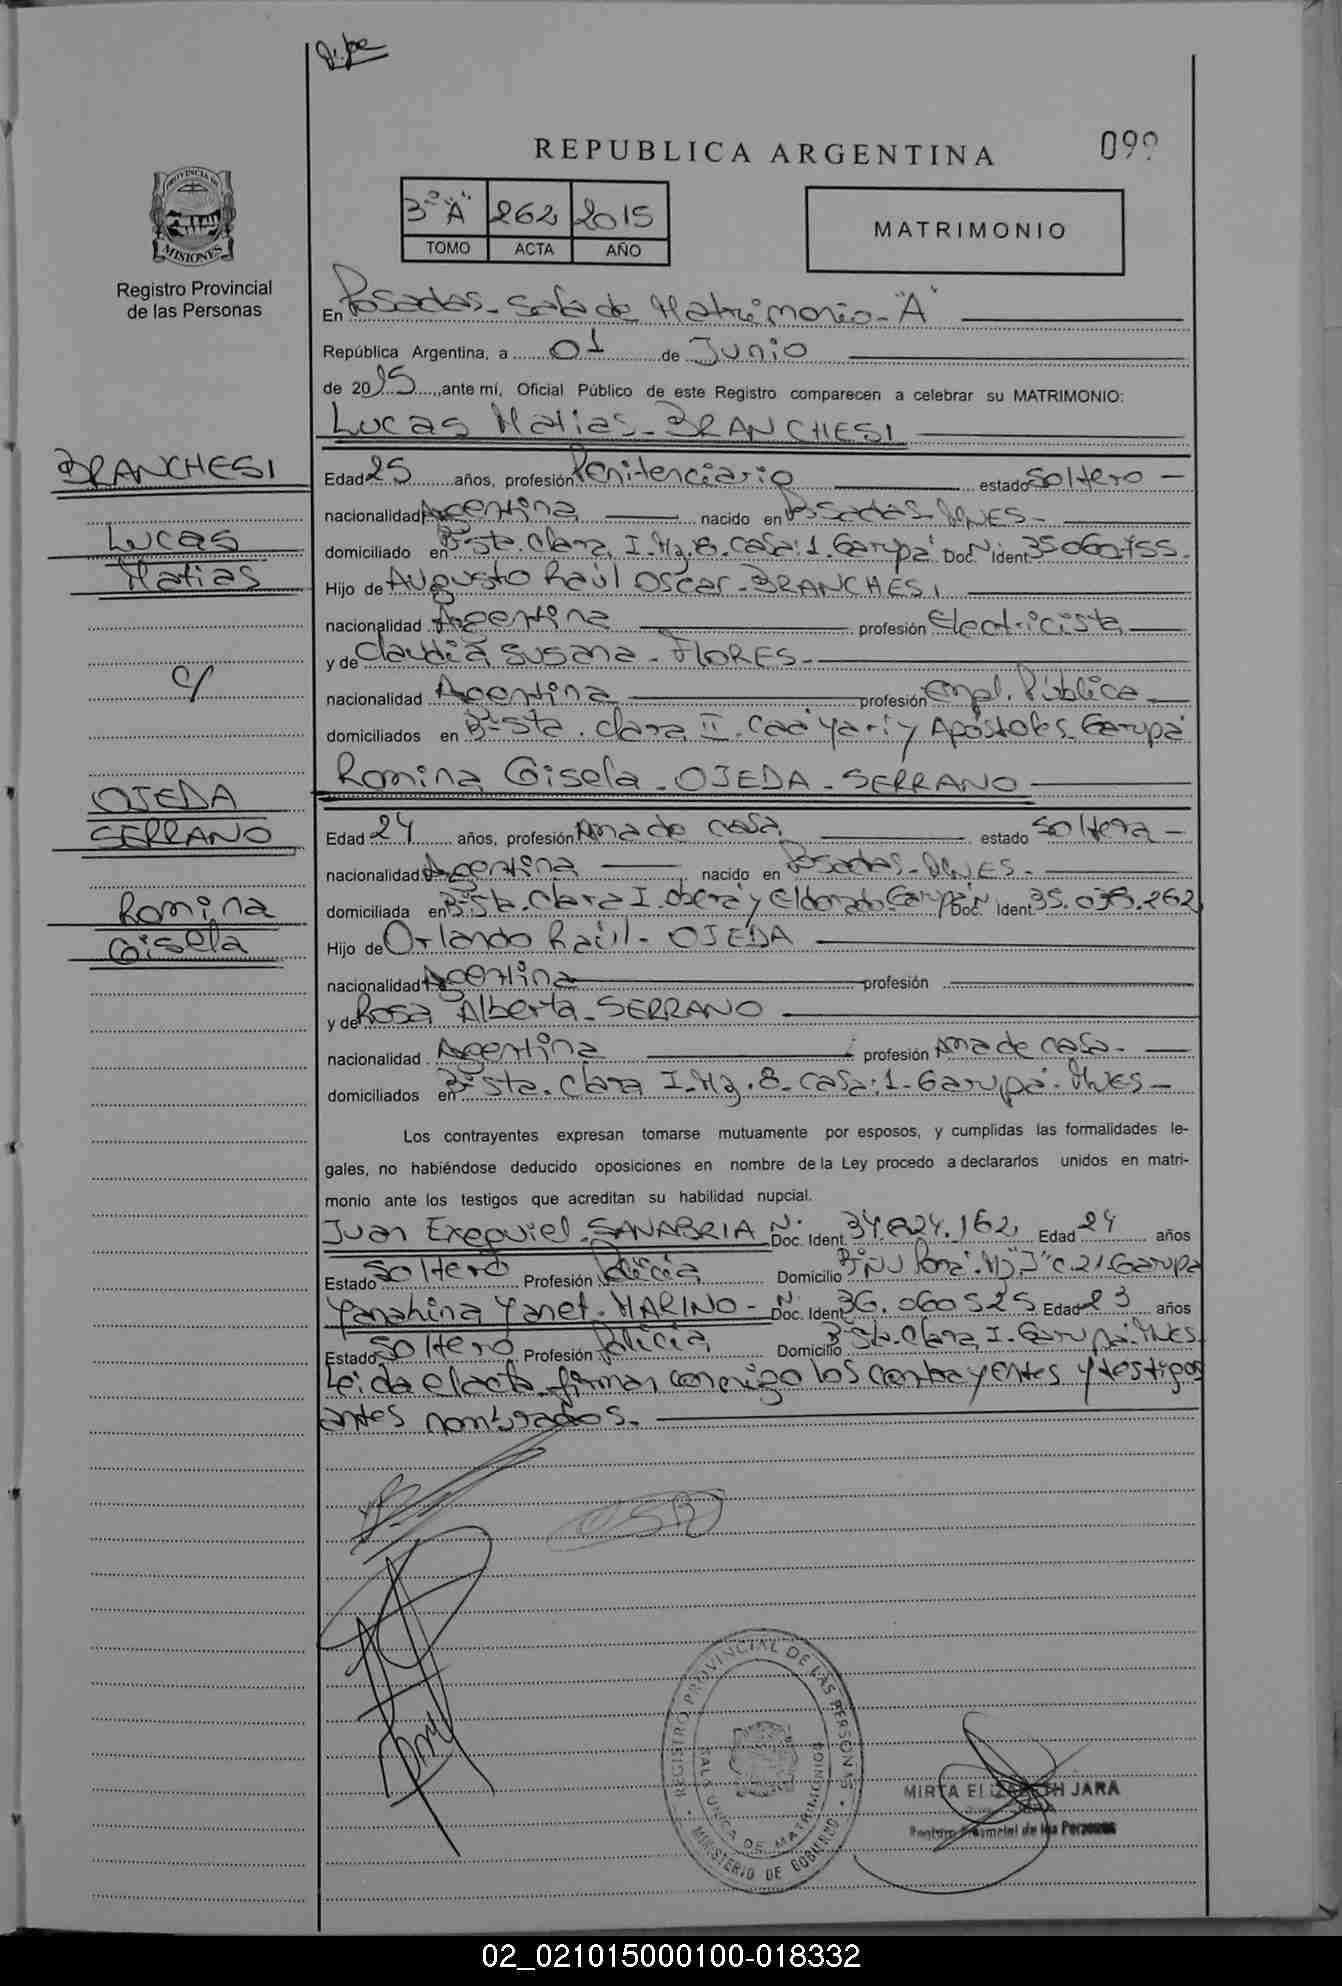 REPUBLICA ARGENTINA
3º "A" 262 2015
TOMO ACTA AÑO
MATRIMONIO
PROVINCIA DE
MISIONES
Registro Provincial
de las Personas
En Posadas - Sala de Matrimonio - "A"
República Argentina, a 01 de Junio
de 2015, ante mí, Oficial Público de este Registro comparecen a celebrar su MATRIMONIO:
Lucas Matias - BRANCHESI
BRANCHESI
Lucas
Matias
c/
OJEDA
SERRANO
Romina
Gisela
Edad 25 años, profesión Penitenciario estado Soltero -
nacionalidad Argentina nacido en Posadas - Mnes -
domiciliado en Bº Sta. Clara I - Mz. 8 - Casa: 1 - Garupá Doc. Nº Ident. 35.060.155.
Hijo de Augusto Raúl Oscar - BRANCHESI
nacionalidad Argentina profesión Electricista
y de Claudia Susana - FLORES -
nacionalidad Argentina profesión Empl. Pública
domiciliados en Bº Sta. Clara II - Caá Yarí y Apóstoles - Garupá
Romina Gisela - OJEDA - SERRANO
Edad 24 años, profesión Ama de casa estado Soltera -
nacionalidad Argentina nacido en Posadas - Mnes -
domiciliada en Bº Sta. Clara I - Oberá y Eldorado Garupá Doc. Nº Ident. 35.038.262
Hijo de Orlando Raúl - OJEDA
nacionalidad Argentina profesión
y de Rosa Alberta - SERRANO
nacionalidad Argentina profesión Ama de casa -
domiciliados en Bº Sta. Clara I - Mz. 8 - Casa: 1 - Garupá - Mnes -
Los contrayentes expresan tomarse mutuamente por esposos, y cumplidas las formalidades le-
gales, no habiéndose deducido oposiciones en nombre de la Ley procedo a declararlos unidos en matri-
monio ante los testigos que acreditan su habilidad nupcial.
Juan Exequiel - SANABRIA Nº Doc. Ident. 34.824.162 Edad 24 años
Estado Soltero Profesión Policía Domicilio Garupá
Yanahina Yanet - MARINO - Nº Doc. Ident. 36.060525 Edad 23 años
Estado Soltero Profesión Policía Domicilio Bº Sta. Clara I - Garupá - Mnes
Leida el acta - firman conmigo los contrayentes y testigos
antes nombrados. -
REGISTRO PROVINCIAL DE LAS PERSONAS
SALA UNICA DE MATRIMONIOS
MINISTERIO DE GOBIERNO
MIRTA ELIZABETH JARA
Registro Provincial de las Personas
02_021015000100-018332